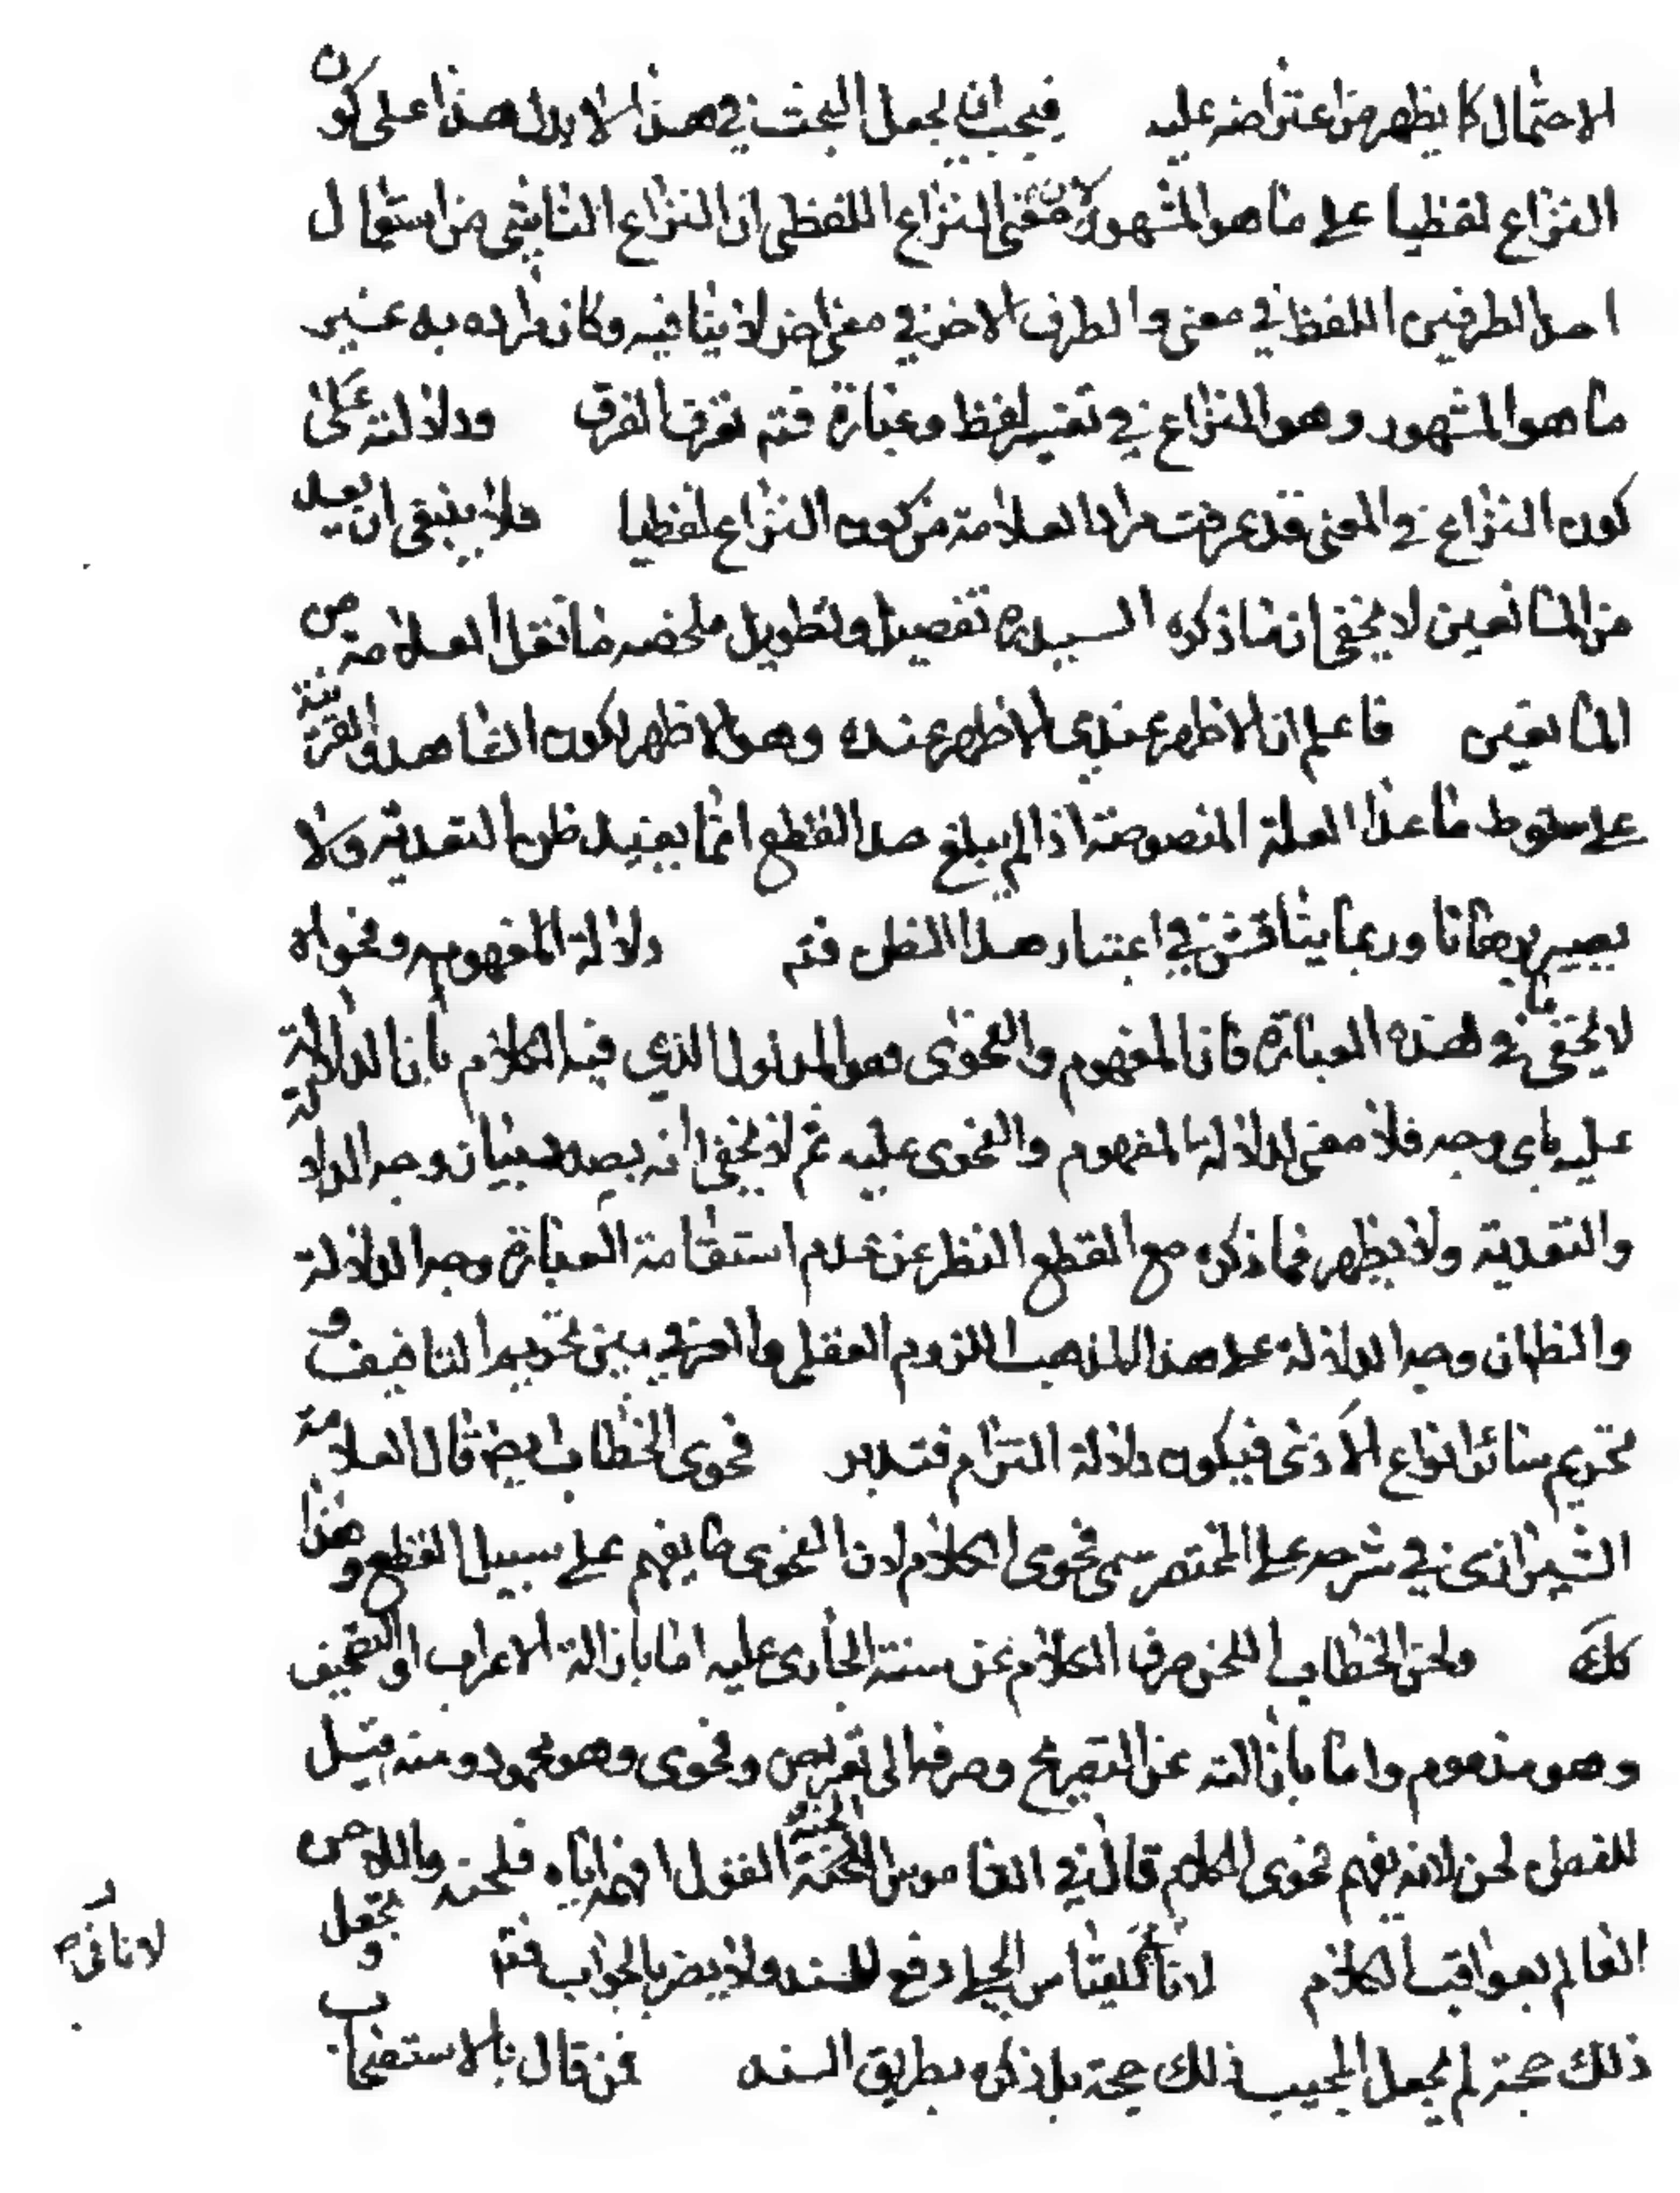 الاحتمال كما يظهر من اعتراضه عليه فيجب ان يجعل البحث في هذا لا بدل هذا على كون
النزاع لفظيا على ما هو المشهور لان معنى النزاع اللفظي ان النزاع الناشي من استعمال
احد الطرفين اللفظ في معنى والطرف الاخر في معنى اخر لا ينافيه وكان مراده به غير
ما هو المشهور وهو النزاع في تفسير لفظ وعبارة فتم تعرف الفرق ودلالته على
كون النزاع في المعنى قد عرفت مراد العلامة من كون النزاع لفظيا فلا ينبغي ان يعد
من المانعين لا يخفى ان ما ذكره السيد ره تفصيل وتطويل ملخصه ما نقل العلامة من
المانعين فاعلم ان الاظهر عندي الاظهر عنده وهو الاظهر لكون الشاهد والقرينة
على سقوط ما عدا العلة المنصوصة اذا لم يبلغ حد القطع انما يفيد ظن التعدية ولا
يصير برهانا وربما يناقش في اعتبار هذا الظن فتم دلالة المفهوم وفحواه
لا يخفى ما في هذه العبارة فان المفهوم والفحوى هو المدلول الذي فيه الكلام بان الدلالة
عليه باي وجه فلا معنى لدلالة المفهوم والفحوى عليه ثم لا يخفى انه بصدد بيان وجه الدلالة
والتعدية ولا يظهر فيما ذكره مع القطع النظر عن عدم استقامة العبارة وجه الدلالة
والظاهر ان وجه الدلالة على هذا المذهب اللزوم العقلي والعرفي بين تحريم التافيف و
تحريم سائر انواع الاذى فيكون دلالة التزام فتدبر فحوى الخطاب ايضا قال العلامة
الشيرازي في شرحه على المختصر سمي فحوى الكلام لان الفحوى ما يفهم على سبيل القطع وهذا
كك ولحن الخطاب اللحن صرف الكلام عن سننه الجاري عليه اما بازالة الاعراب او التصحيف
وهو مذموم واما بازالته عن التصريح وصرفه الى تعريض وفحوى وهو محمود ومنه قيل
للفطن لحن لانه يفهم فحوى الكلام قال في القاموس الحنه القول افهمه اياه فلحنه واللاحن
العالم بعواقب الكلام لانا كلياس الجلي دفع للسند ولا يضر بالجواب فتم و يجعل
ذلك حجة لم يجعل المجيب ذلك حجة بل ذكره بطريق السند فمن قال بالاستصحاب